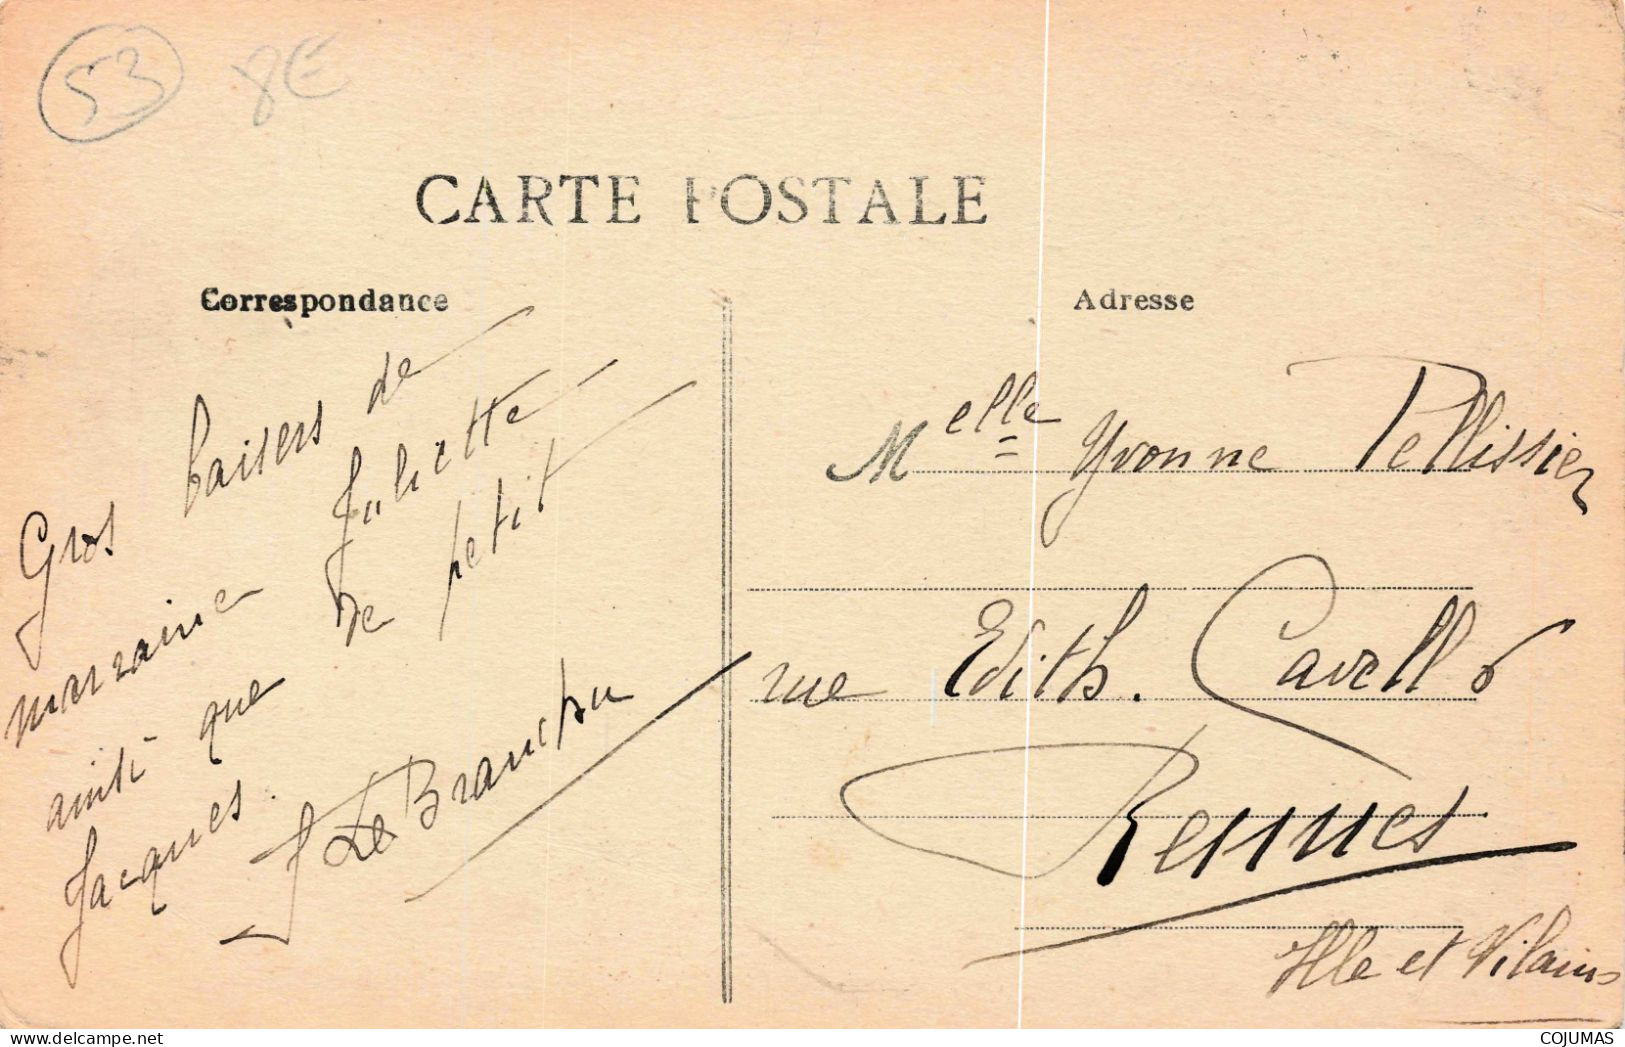 53 8E
CARTE POSTALE
Correspondance
Gros baisers de
marraine Juliette
ainsi que de petit
Jacques.
J Le Branchu
Adresse
Melle Yvonne Pellissier
rue Edith. Cavell 6
Rennes
Ille et Vilaine
COJUMAS